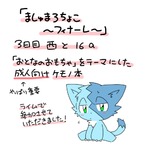 「ましゅまろちょこ
～フィナーレ～」
3日目 西と16a
「おとなのおもちゃ」をテーマにした
成人向けケモノ本
やっぱり青春
ライムで
参加させて
いただきました！